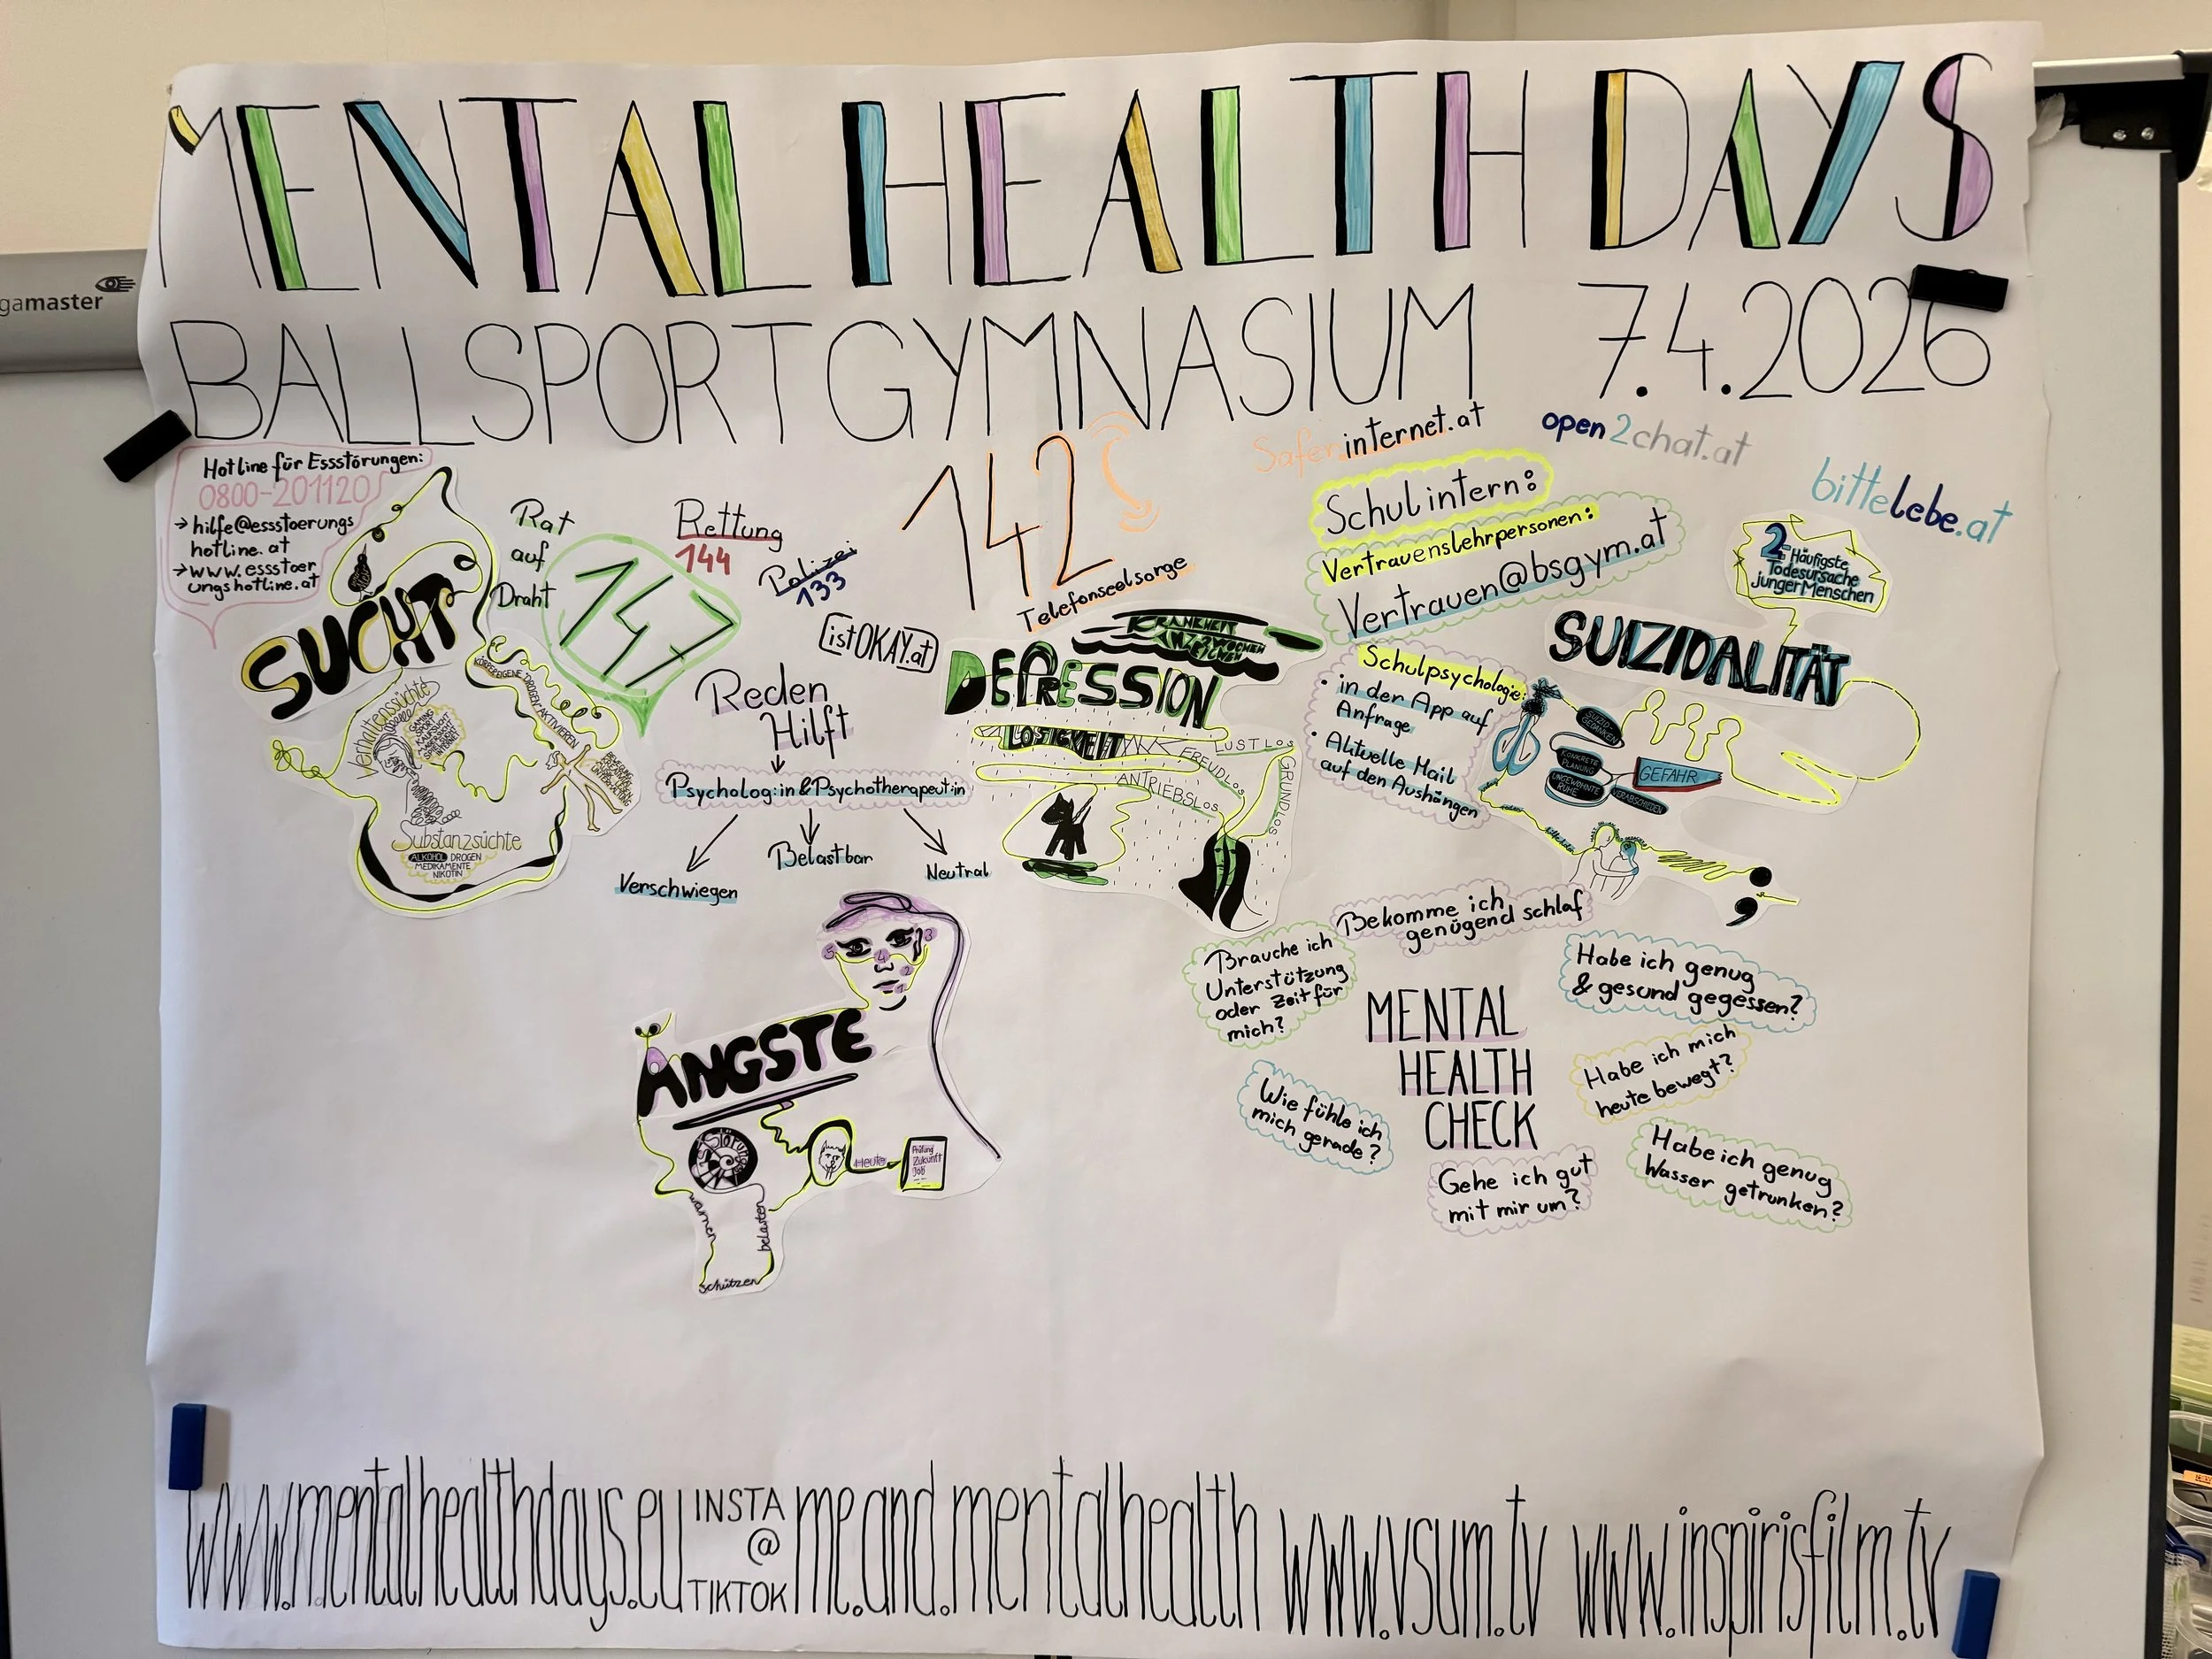 MENTAL HEALTH DAYS
BALLSPORTGYMNASIUM 7.4.2026
gamaster
Hotline für Essstörungen:
0800-201120
→ hilfe@essstoerungs
hotline.at
→ www.essstoer
ungshotline.at
SUCHT
KÖRPEREIGENE DROGEN AKTIVIEREN
Verhaltenssüchte
GAMING
SPORT
KAUFSUCHT
INTERNET
Substanzsüchte
ALKOHOL DROGEN
MEDIKAMENTE
NIKOTIN
Rat
auf
Draht
147
Rettung
144
Polizei
133
142
Telefonseelsorge
istOKAY.at
Reden
Hilft
Psycholog:in & Psychotherapeut:in
Verschwiegen
Belastbar
Neutral
Saferinternet.at
open2chat.at
bittelebe.at
Schulintern:
Vertrauenslehrpersonen:
Vertrauen@bsgym.at
Schulpsychologie:
• in der App auf
Anfrage
• Aktuelle Mail
auf den Aushängen
KRANKHEIT
DEPRESSION
LOSIGKEIT
LUSTLOS
FREUDLOS
ANTRIEBSLOS
GRUNDLOS
2. Häufigste
Todesursache
junger Menschen
SUIZIDALITÄT
SUIZID
GEDANKEN
KONKRETE
PLANUNG
UNGEWOHNTE
RUHE
VERABSCHIEDEN
GEFAHR
ÄNGSTE
5 4 3 2 1
Störung
Heute
Prüfung
Zukunft
Job
warnen
belasten
schützen
Bekomme ich
genügend schlaf
Brauche ich
Unterstützung
oder Zeit für
mich?
Habe ich genug
& gesund gegessen?
MENTAL
HEALTH
CHECK
Habe ich mich
heute bewegt?
Wie fühle ich
mich gerade?
Gehe ich gut
mit mir um?
Habe ich genug
Wasser getrunken?
www.mentalhealthdays.eu INSTA @ TIKTOK me.and.mentalhealth www.vsum.tv www.inspirisfilm.tv